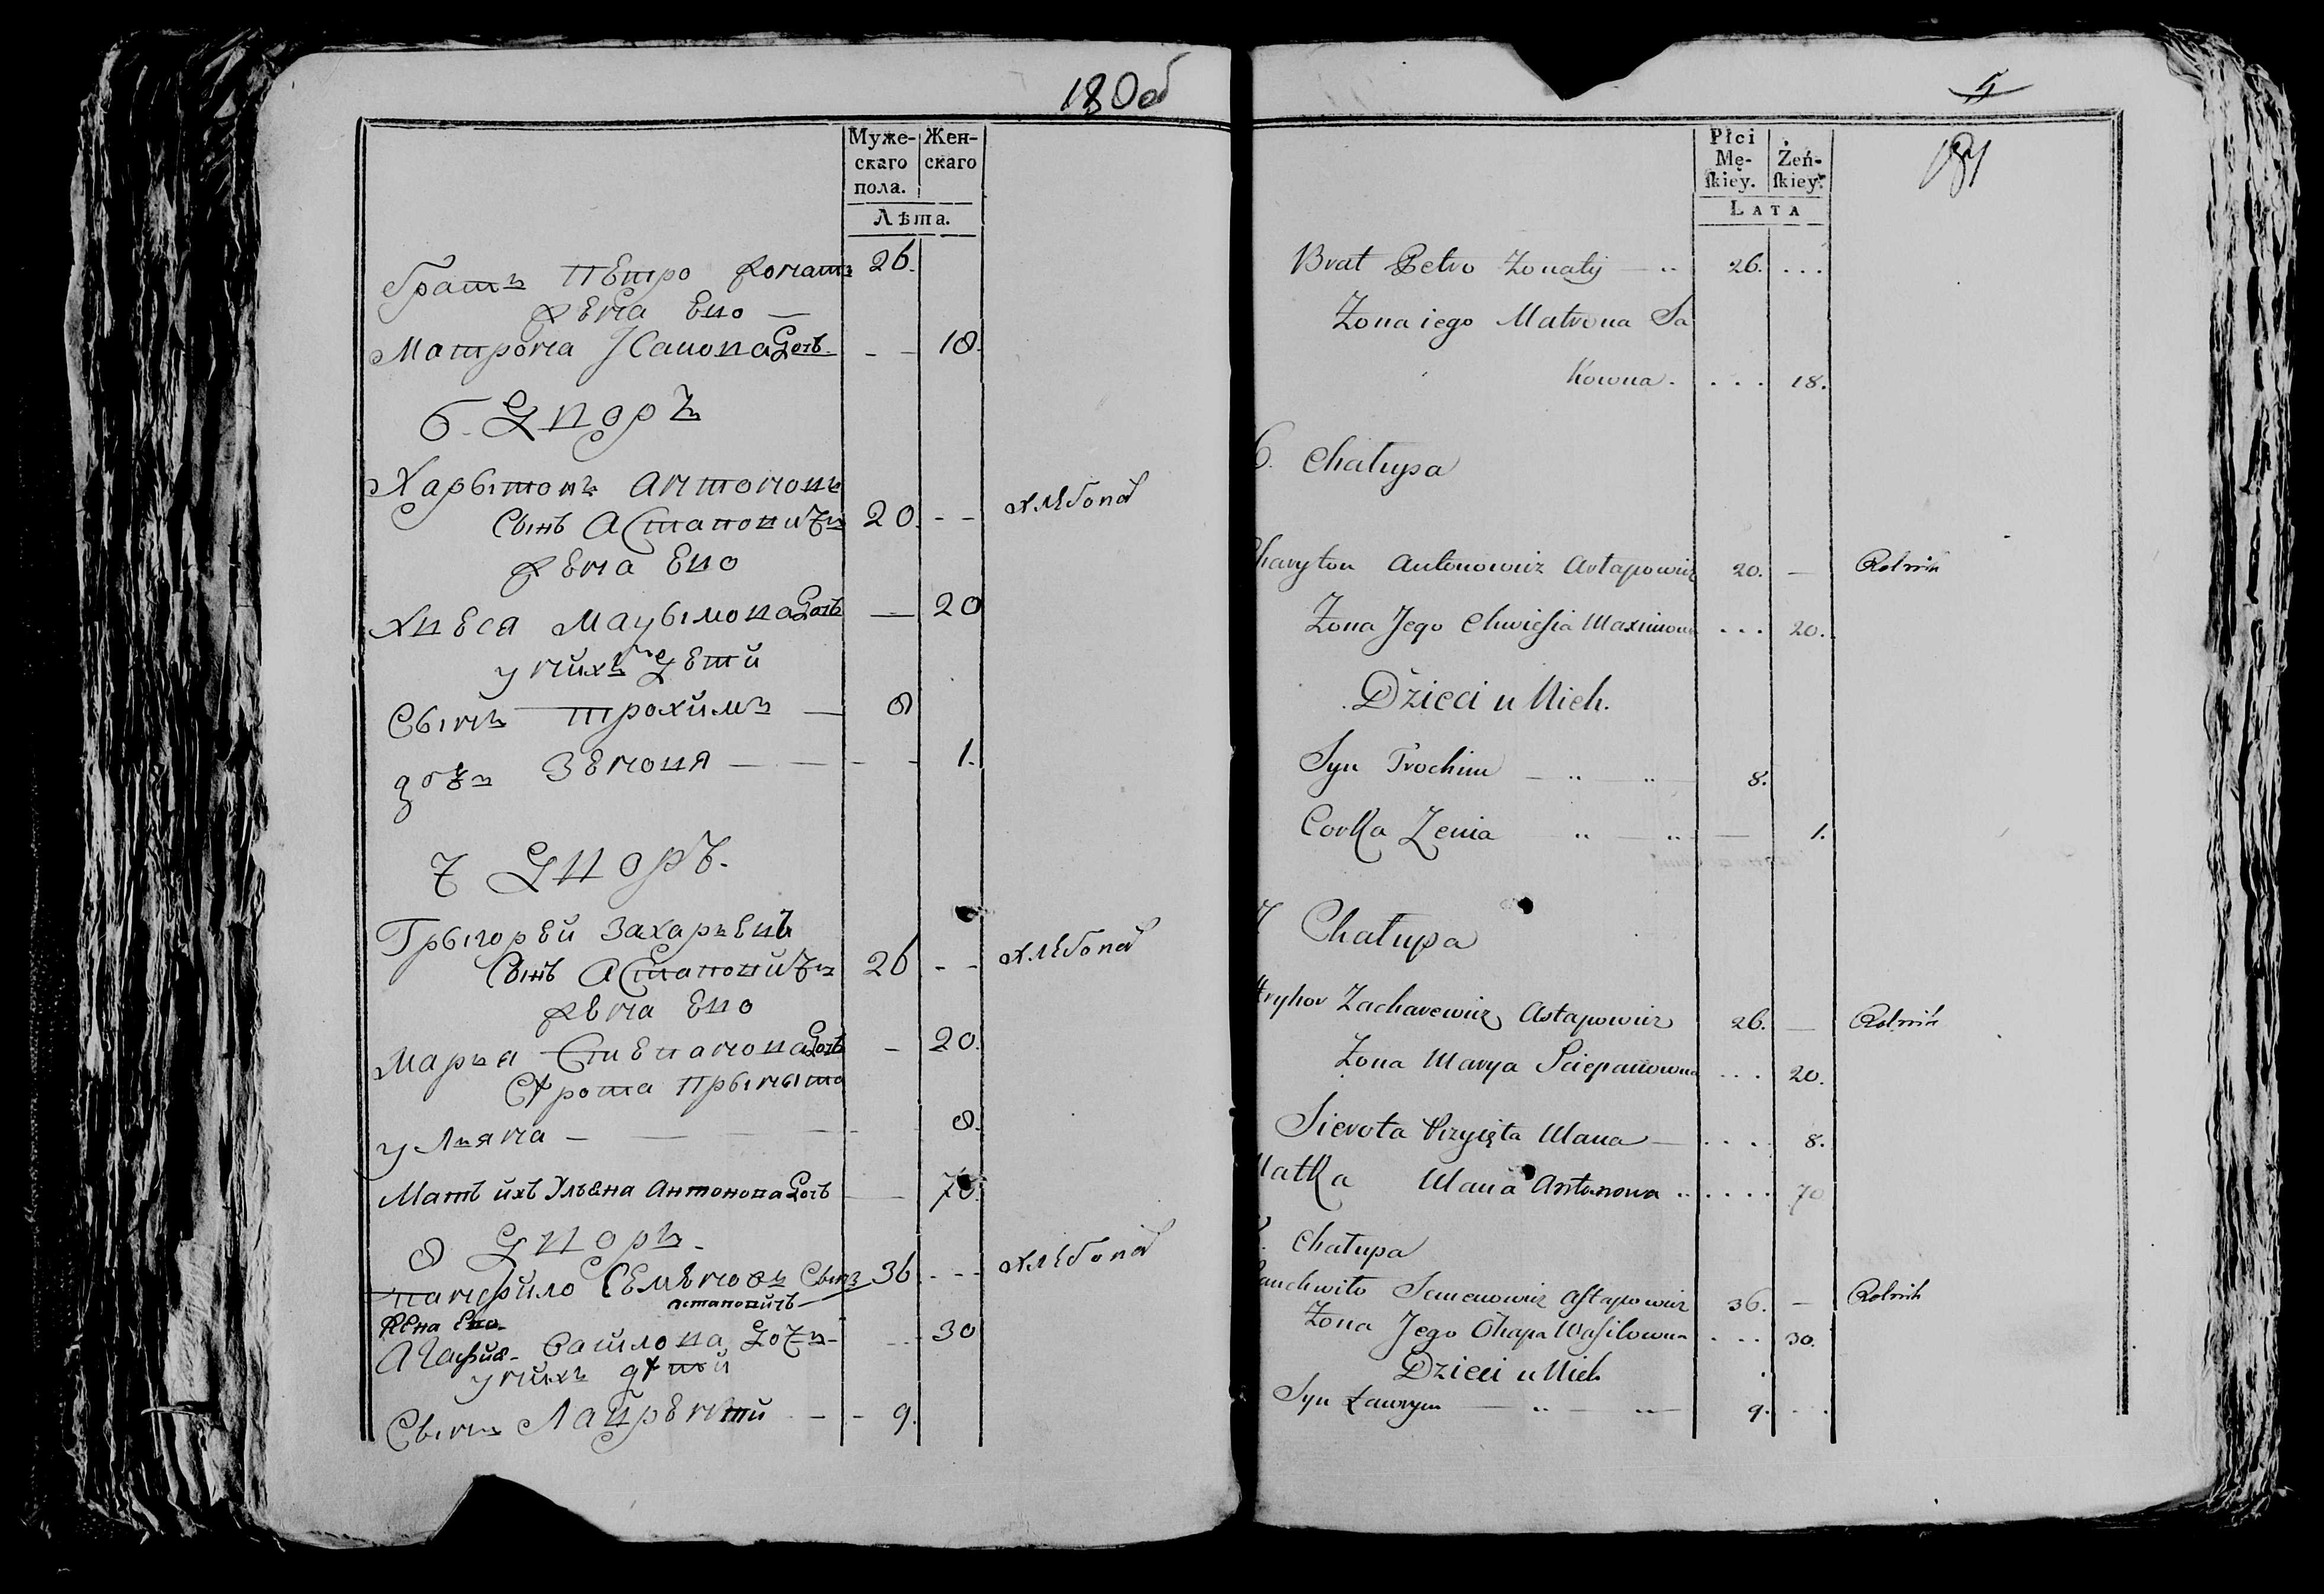 180об
Муже-
скаго
пола.
Жен-
скаго
Лѣта.
братъ Петро жонатъ 26.
жена ево —
Матрона Исакова дочъ - - 18.
6. Дворъ
Харытонъ Антоновъ
сынъ Астаповичъ 20. - - хлебопа
жена ево
Хвеся Марымова дочъ — 20
у нихъ дети
Сынъ трохимъ — 8
дочъ Зеновя — — - - 1.
7 Дворъ.
Грыгорей Захарьевъ
сынъ Астаповичъ 26 - - хлебопа
жена ево
Марья Степанова дочъ - 20.
Сѣрота прынята
Ульяна — — — — - 8.
Матъ ихъ Ульяна Антонова дочъ — 70.
8 Дворъ.
панфило Семѣновъ сынъ 36. - - - хлебопа
астаповичъ
жена ево
Агафия Василова дочъ - - 30
у нихъ дѣти
Сынъ Лаврентий - - - 9.
5
181
Płci
Mę-
ſkiey.
Żeń-
ſkiey.
LATA
Brat Petro Żonaty — .. 26. ...
Żona iego Matrona Sa
kowna. ... 18.
6. Chałupa
Charyton Antonowicz Astapowicz 20. — Rolnik
Żona Jego Chwiesia Maximowna ... 20.
Dzieci u Nich.
Syn Trochim — .. — .. — 8.
Corka Zenia .. — .. — 1.
7 Chałupa
Hryhor Zacharewicz Astapowicz 26. — Rolnik
Żona Marya Sciepanowna ... 20.
Sierota Przyięta Ulana — .... 8.
Matka Ulana Antonowa .. .... 70
8. Chałupa
Panchwiło Semenowicz Astapowicz 36. — Rolnik
Żona Jego Ohapa Wasilowna ... 30.
Dzieci u Nich
Syn Ławryn — .. — .. — 9. ...